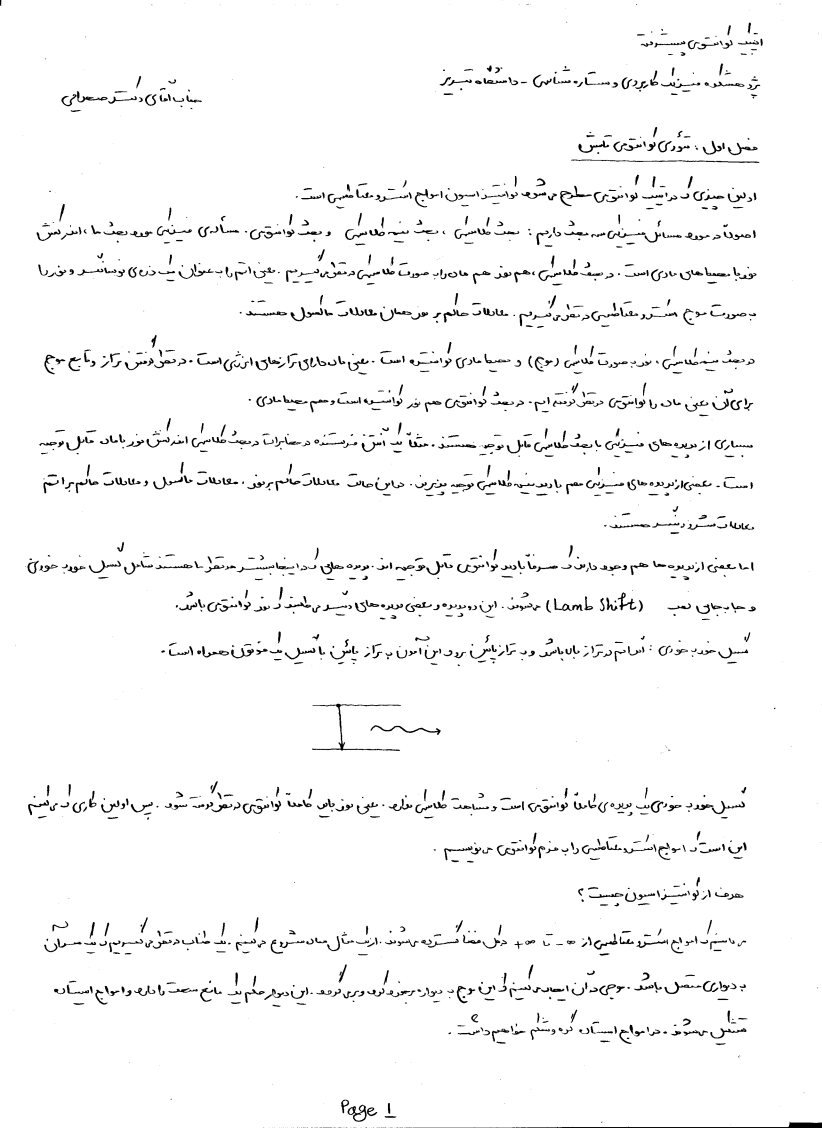 اپتیک کوانتومی پیشرفته
پژوهشکده فیزیک کاربردی و ستاره شناسی - دانشگاه تبریز
جناب آقای دکتر صحرایی
فصل اول : تئوری کوانتومی تابش
اولین چیزی که در اپتیک کوانتومی مطرح می شود کوانتیزاسیون امواج الکترومغناطیسی است.
اصولاً در مورد مسائل فیزیکی سه بحث داریم : بحث کلاسیکی ، بحث نیمه کلاسیکی و بحث کوانتومی. مسأله ی فیزیکی مورد بحث ما ، اندرکنش
نور با محیط های مادی است . در بحث کلاسیکی ، هم نور هم ماده را به صورت کلاسیکی در نظر می گیریم . یعنی اتم را به عنوان یک ذره ی نوسانگر و نور را
به صورت موج الکترومغناطیسی در نظر می گیریم . معادلات حاکم بر نور همان معادلات ماکسول هستند .
در بحث نیمه کلاسیکی ، نور به صورت کلاسیکی (موج) و محیط مادی کوانتیده است . یعنی ماده دارای ترازهای انرژی است . در نظر گرفتن تراز و تابع موج
برای آن یعنی ماده را کوانتومی در نظر گرفته ایم . در بحث کوانتومی هم نور کوانتیده است و هم محیط مادی .
بسیاری از پدیده های فیزیکی با بحث کلاسیکی قابل توجیه هستند . مثلاً یک آنتن فرستنده در مخابرات در بحث کلاسیکی اندرکنش نور با ماده قابل توجیه
است . بعضی از پدیده های فیزیکی هم با دید نیمه کلاسیکی توجیه پذیرند . در این حالت معادلات حاکم بر نور ، معادلات ماکسول و معادلات حاکم بر اتم
معادلات شرودینگر هستند .
اما بعضی از پدیده ها هم وجود دارند که صرفاً با دید کوانتومی قابل توجیه اند . پدیده هایی که در اینجا بیشتر مد نظر ما هستند شامل گسیل خود به خودی
و جابجایی لمب (Lamb Shift) می شوند . این دو پدیده و بعضی پدیده های دیگر می طلبند که نور کوانتومی باشد .
گسیل خود به خودی : اگر اتم در تراز بالا باشد و به تراز پائین برود این آمدن به تراز پائین با گسیل یک فوتون همراه است .
گسیل خود به خودی یک پدیده ی کاملاً کوانتومی است و مشابهت کلاسیکی ندارد . یعنی نور باید کاملاً کوانتومی در نظر گرفته شود . پس اولین کاری که می کنیم
این است که امواج الکترومغناطیسی را به فرم کوانتومی می نویسیم .
هدف از کوانتیزاسیون چیست ؟
می دانیم که امواج الکترومغناطیسی از ∞- تا ∞+ داخل فضا گسترده می شوند . از یک مثال ساده شروع می کنیم . یک طناب در نظر می گیریم که یک سر آن
به دیواری متصل باشد . موجی در آن ایجاد می کنیم که این موج به دیواره برخورد کرده و بر می گردد . این دیوار حکم یک مانع سخت را دارد و امواج ایستاده
تشکیل می شوند . در امواج ایستاده گره و شکم خواهیم داشت .
Page 1